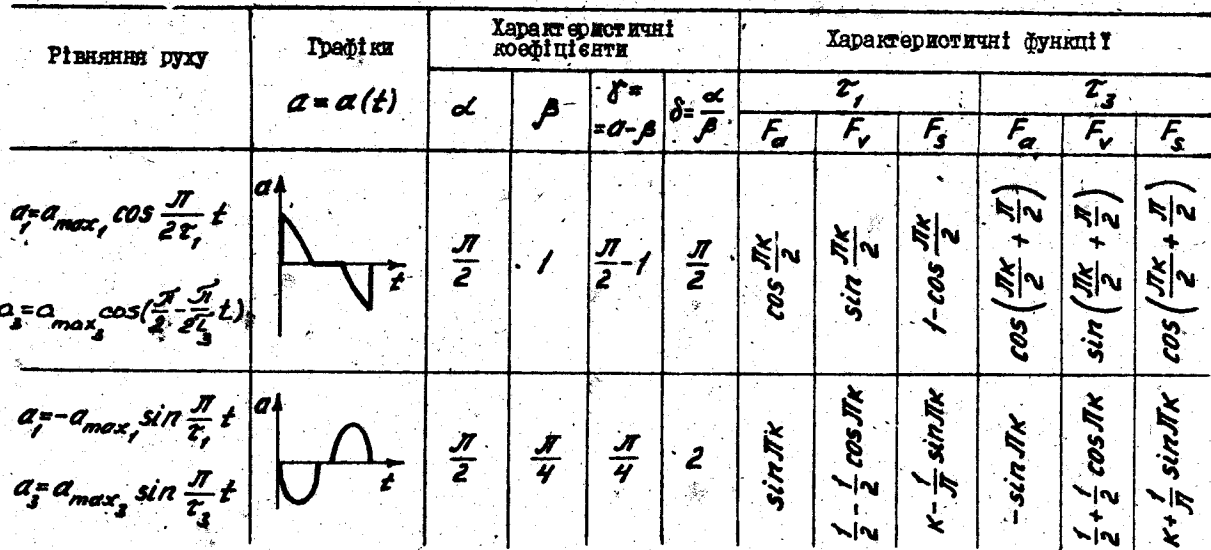 Рівняння руху
Графіки
a = a(t)
Характеристичні
коефіцієнти
Характеристичні функції
α
β
γ =
= α - β
δ = α/β
τ₁
τ₃
F_a
F_v
F_s
F_a
F_v
F_s
a₁ = a_max₁ cos π/2τ₁ t
a₃ = a_max₃ cos(π/2 - π/2τ₃ t)
a
t
π/2
1
π/2 - 1
π/2
cos πк/2
sin πк/2
1 - cos πк/2
cos(πк/2 + π/2)
sin(πк/2 + π/2)
cos(πк/2 + π/2)
a₁ = -a_max₁ sin π/τ₁ t
a₃ = a_max₃ sin π/τ₃ t
a
t
π/2
π/4
π/4
2
sin πк
1/2 - 1/2 cos πк
к - 1/π sin πк
-sin πк
1/2 + 1/2 cos πк
к + 1/π sin πк